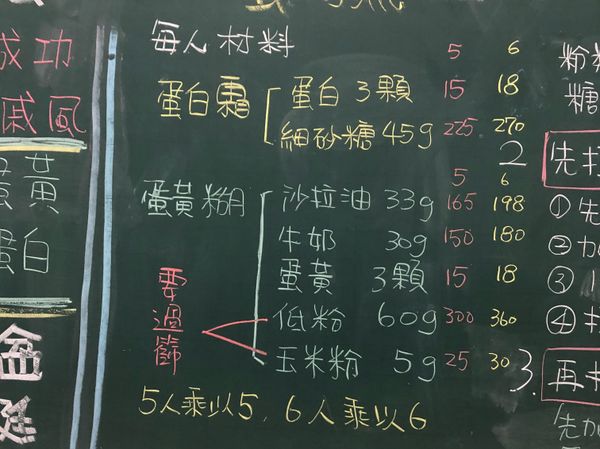 成功
戚風
蛋黃
蛋白
每人材料 5 6
蛋白霜 蛋白 3顆 15 18
細砂糖 45g 225 270
5 6
蛋黃糊 沙拉油 33g 165 198
牛奶 30g 150 180
蛋黃 3顆 15 18
要過篩 低粉 60g 300 360
玉米粉 5g 25 30
5人乘以5, 6人乘以6
粉
糖
2 先打
① 先
② 加
③
④ 打
3. 再打
先加